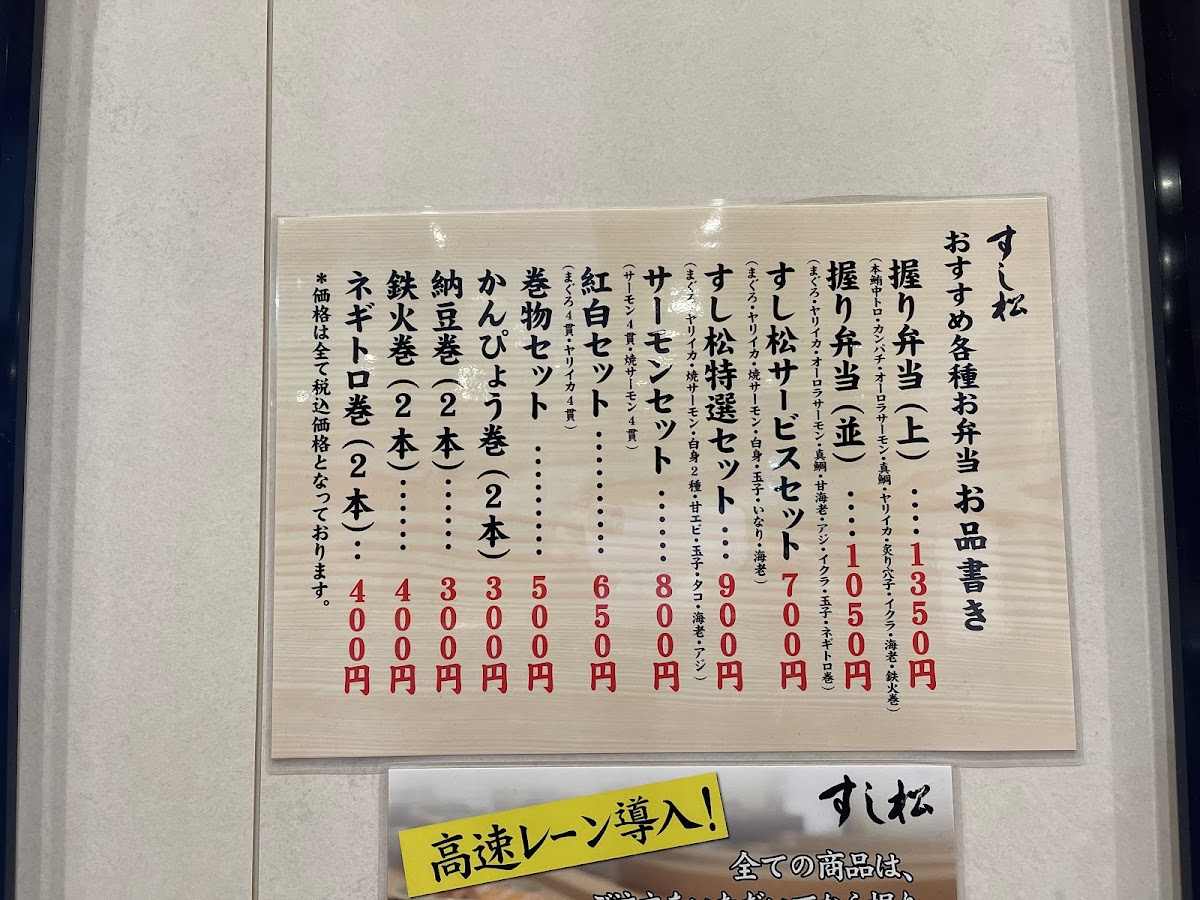 すし松
おすすめ各種お弁当 お品書き
握り弁当(上)‥‥1350円
(本鮪中トロ・カンパチ・オーロラサーモン・真鯛・ヤリイカ・炙り穴子・イクラ・海老・鉄火巻)
握り弁当(並)‥‥1050円
(まぐろ・ヤリイカ・オーロラサーモン・真鯛・甘海老・アジ・イクラ・玉子・ネギトロ巻)
すし松サービスセット 700円
(まぐろ・ヤリイカ・焼サーモン・白身・玉子・いなり・海老)
すし松特選セット‥‥900円
(まぐろ・ヤリイカ・焼サーモン・白身2種・甘エビ・玉子・タコ・海老・アジ)
サーモンセット‥‥‥‥800円
(サーモン4貫・焼サーモン4貫)
紅白セット‥‥‥‥‥‥650円
(まぐろ4貫・ヤリイカ4貫)
巻物セット‥‥‥‥‥500円
かんぴょう巻(2本)300円
納豆巻(2本)‥‥‥300円
鉄火巻(2本)‥‥‥400円
ネギトロ巻(2本)‥400円
*価格は全て税込価格となっております。
すし松
高速レーン導入!
全ての商品は、